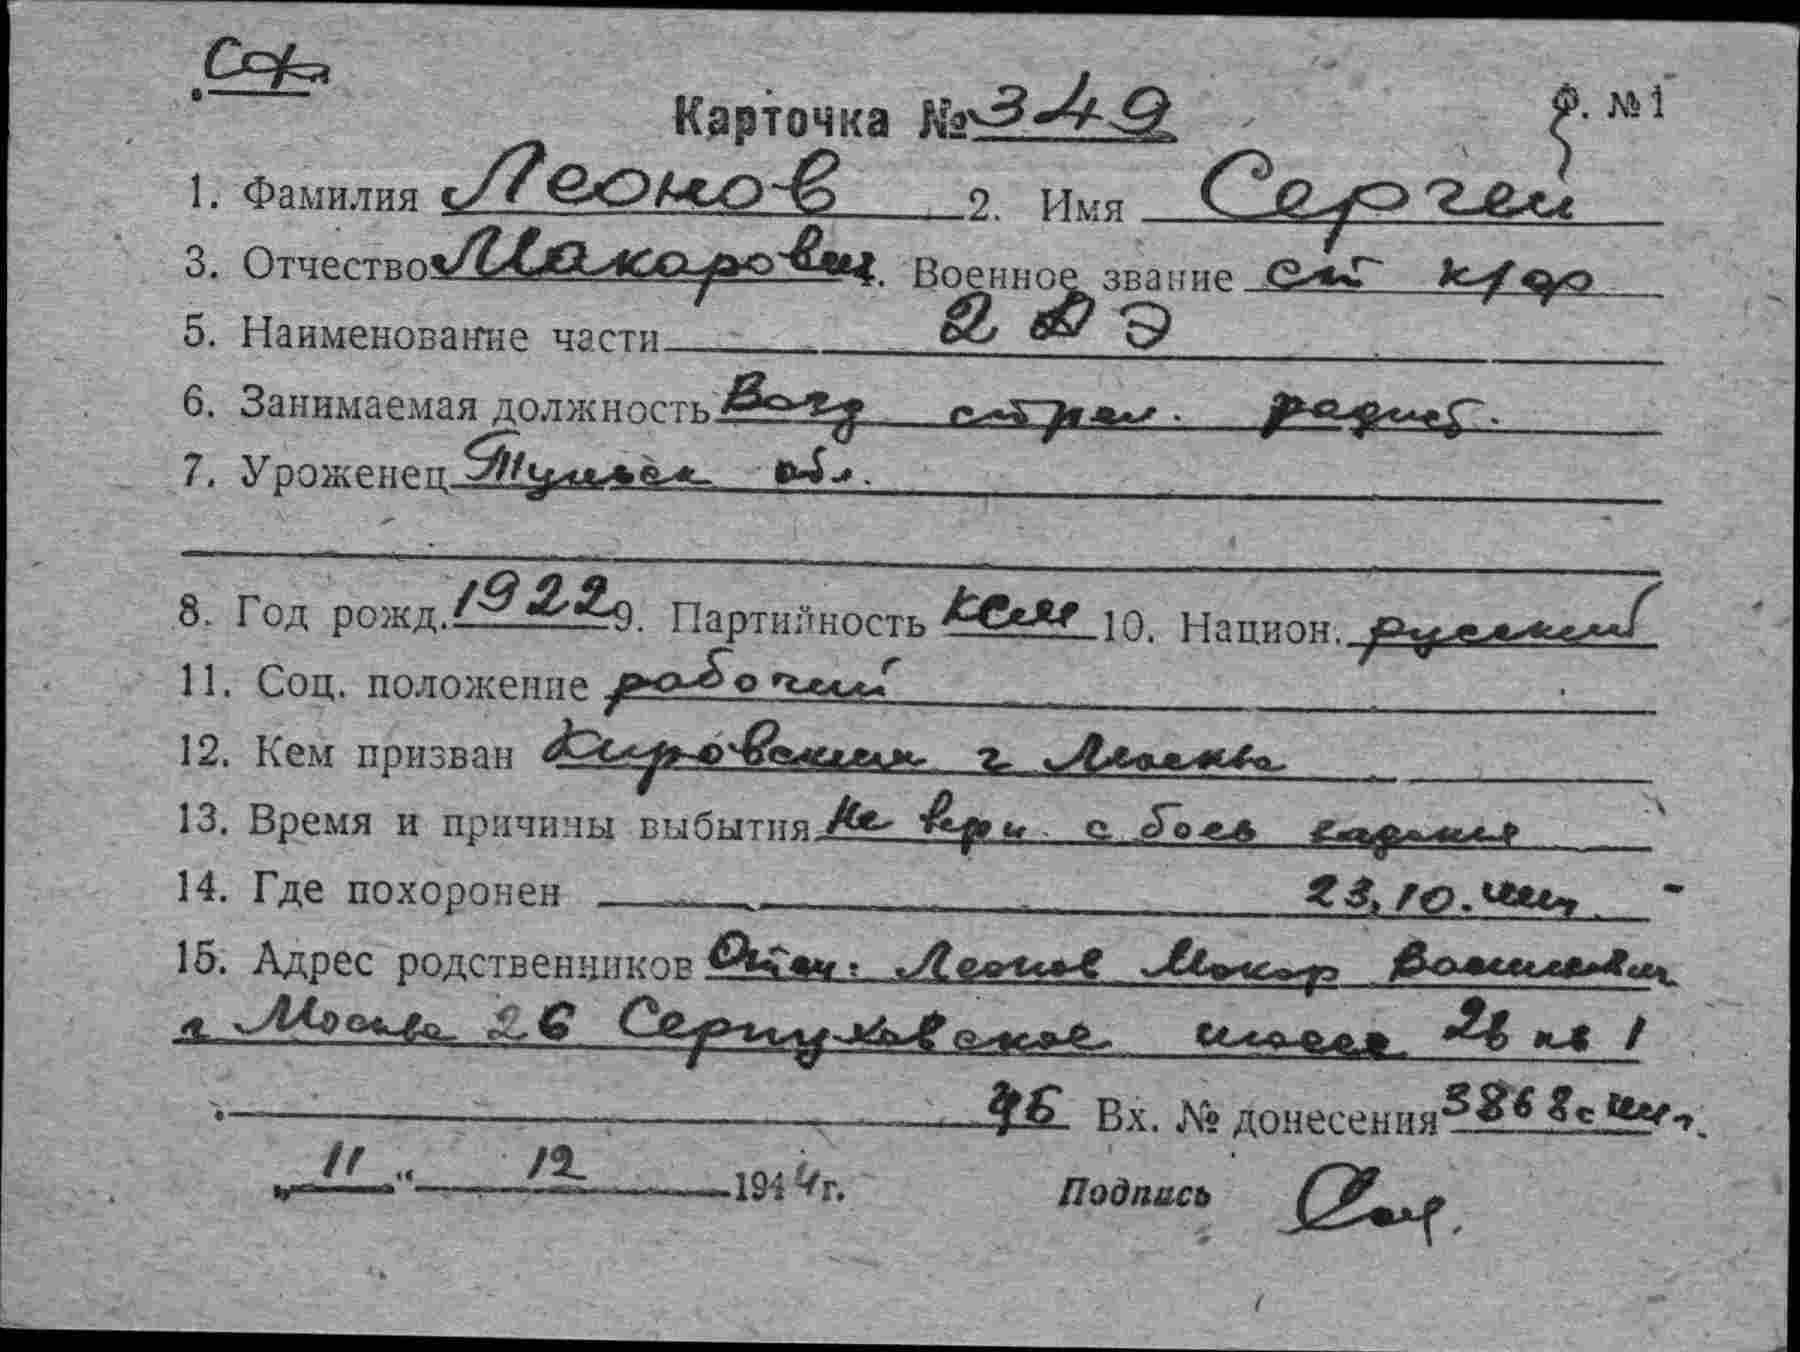 Карточка № 349 Ф. №1
1. Фамилия Леонов 2. Имя Сергей
3. Отчество Макарович. Военное звание ст к/ф
5. Наименование части 2 АЭ
6. Занимаемая должность Возд стрел. радист.
7. Уроженец Тульск обл.
8. Год рожд. 1922 9. Партийность ксм 10. Национ. русский
11. Соц. положение рабочий
12. Кем призван Кировским г Москвы
13. Время и причины выбытия Не верн с боев задания
14. Где похоронен 23.10.44г
15. Адрес родственников Отец: Леонов Макар Васильевич
г Москва 26 Серпуховское шоссе 26 кв 1
Вх. № донесения 3868с 44г.
„11“ 12 1944г. Подпись